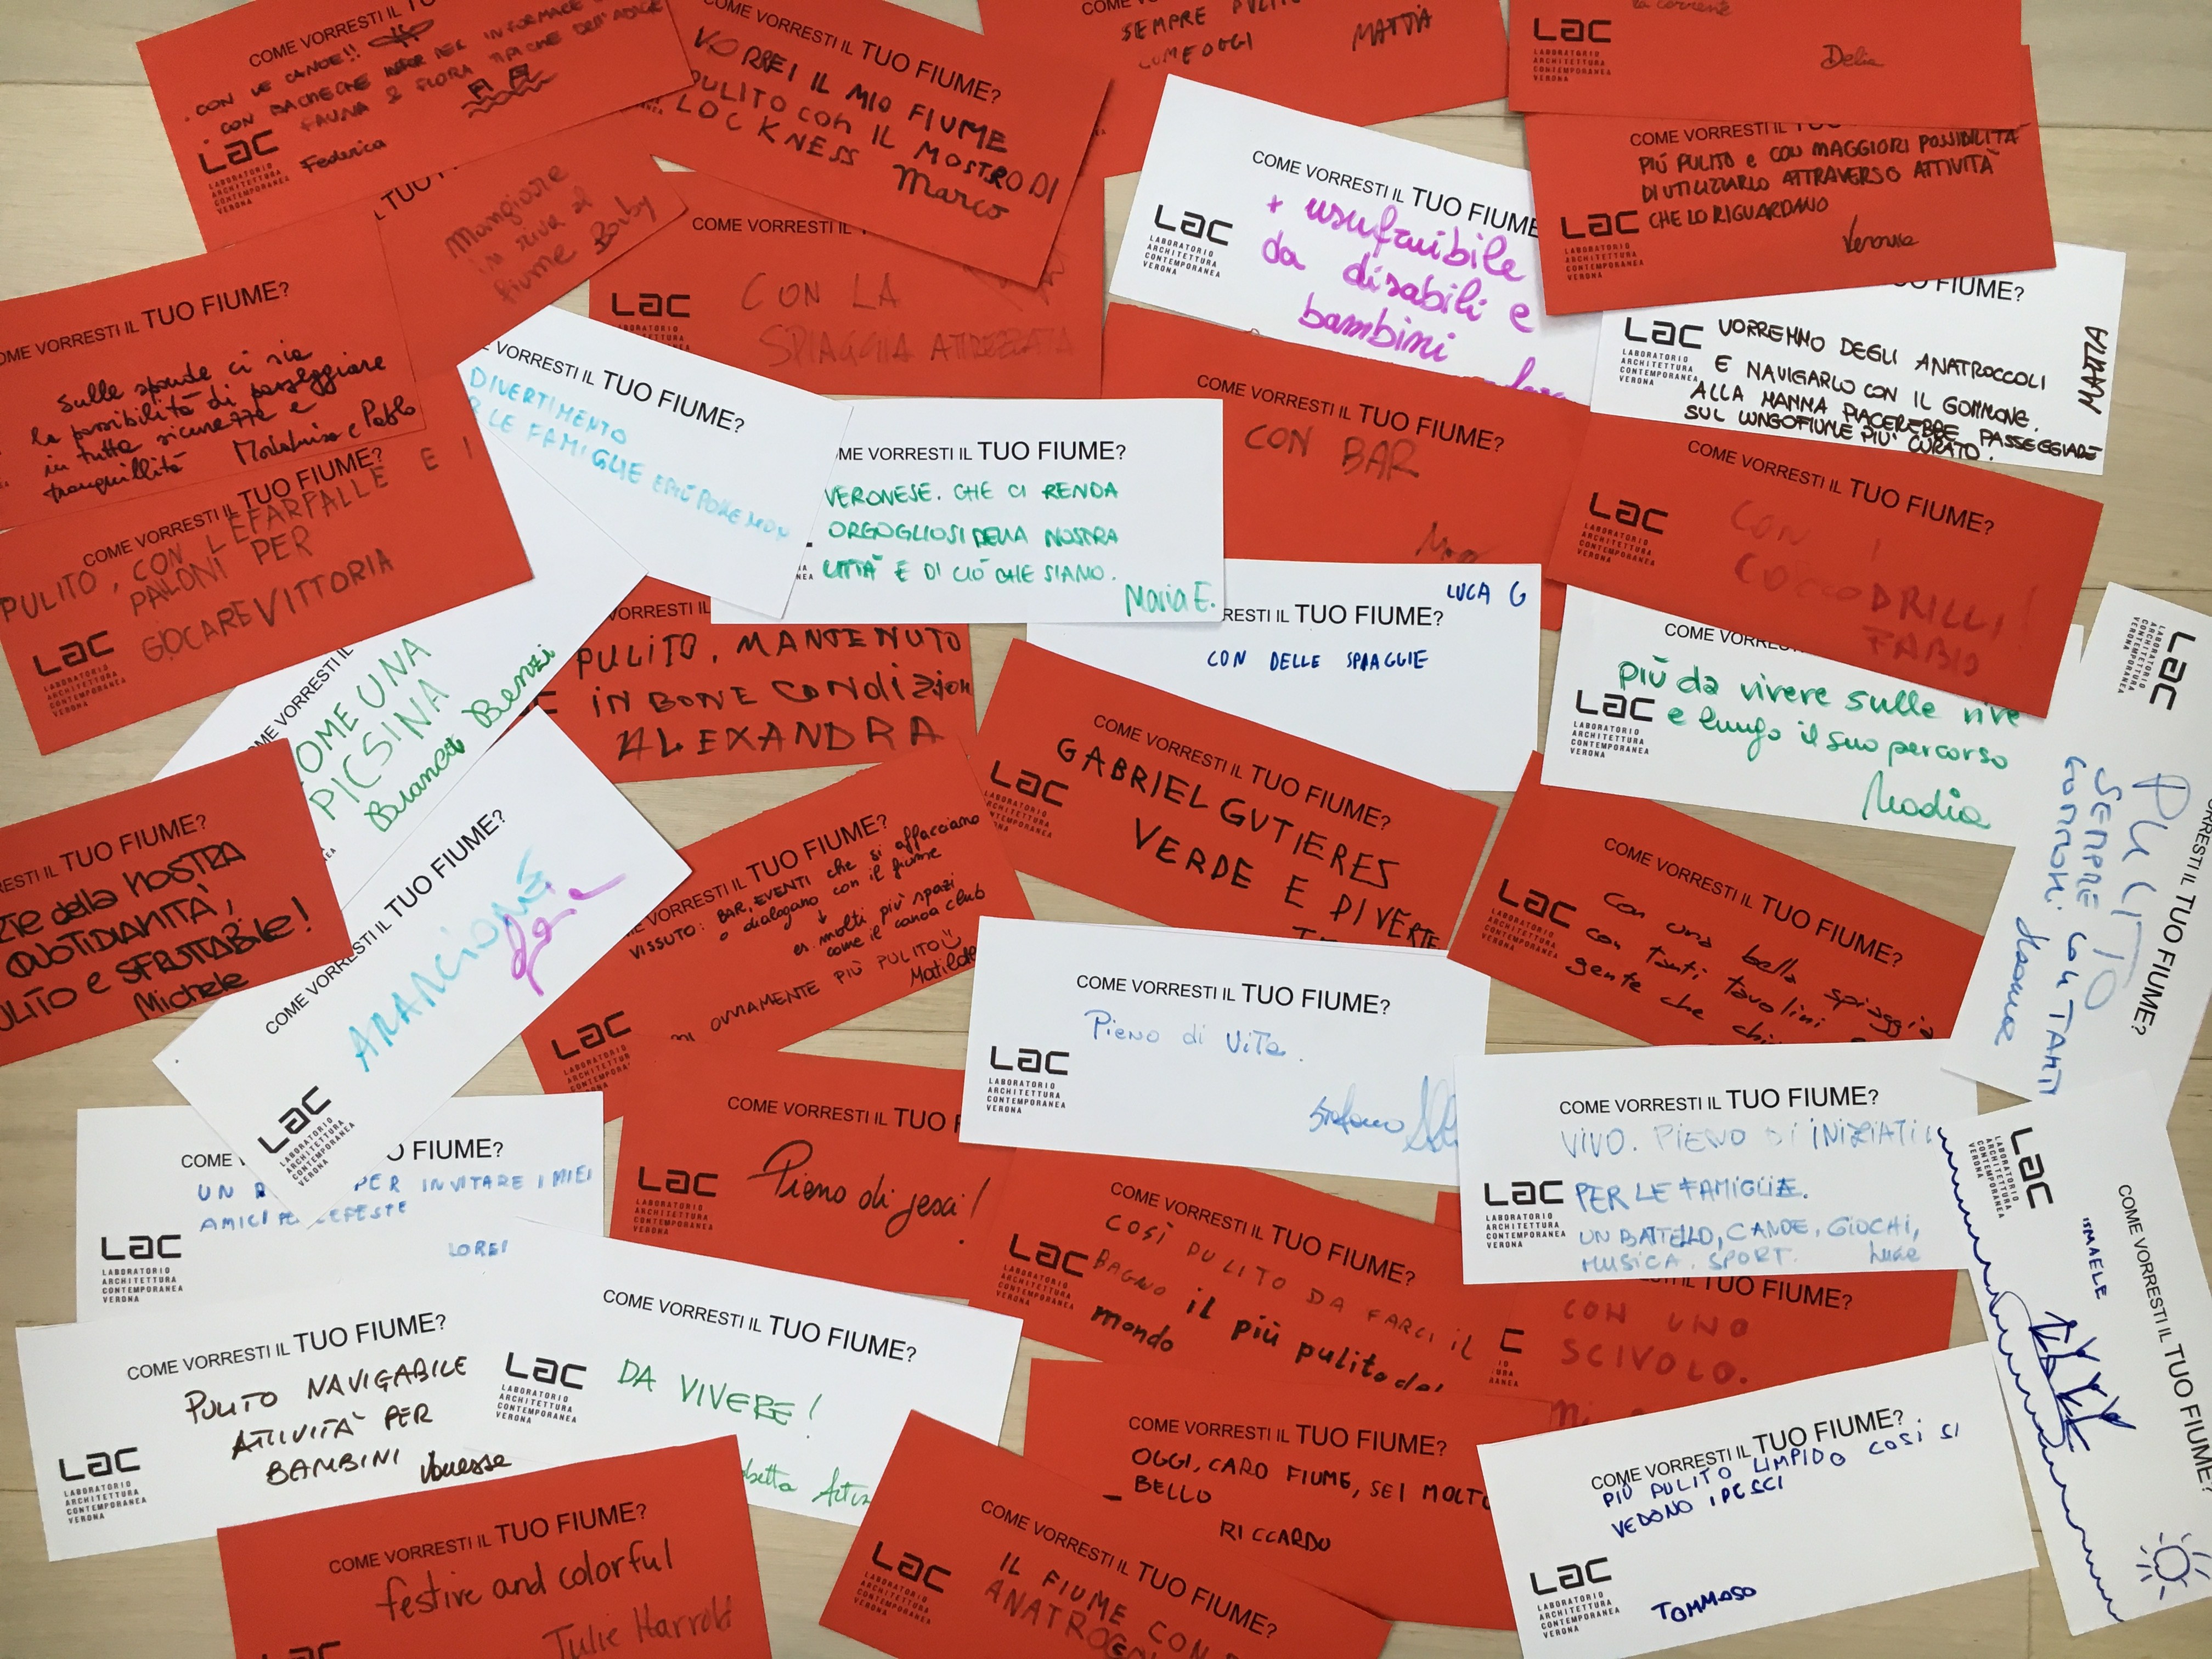 COME VORRESTI IL TUO FIUME?
. CON LE CANOE!!
. CON BACHECHE PER INFORMARE
FAUNA & FLORA TIPICHE DELL'ADIGE
Federica
LAC
LABORATORIO
ARCHITETTURA
CONTEMPORANEA
VERONA
COME VORRESTI IL TUO FIUME?
VORREI IL MIO FIUME
PULITO CON IL MOSTRO DI
LOCKNESS
Marco
SEMPRE PULITO
COME OGGI
MATTIA
LAC
LABORATORIO
ARCHITETTURA
CONTEMPORANEA
VERONA
la corrente
Delia
COME VORRESTI IL TUO FIUME?
+ usufruibile
da disabili e
bambini
LAC
LABORATORIO
ARCHITETTURA
CONTEMPORANEA
VERONA
COME VORRESTI IL
PIÙ PULITO e CON MAGGIORI POSSIBILITÀ
DI UTILIZZARLO ATTRAVERSO ATTIVITÀ
CHE LO RIGUARDANO
LAC
LABORATORIO
ARCHITETTURA
CONTEMPORANEA
VERONA
L TUO
Mangiare
in riva al
fiume
COME VORRESTI IL
CON LA
SPIAGGIA ATTREZZATA
LAC
LABORATORIO
OME VORRESTI IL TUO FIUME?
sulle sponde ci sia
la possibilità di passeggiare
in tutta sicurezza e
tranquillità
VORRESTI IL TUO FIUME?
DIVERTIMENTO
R LE FAMIGLIE E PIÙ POKEMON
FIUME?
VORREMMO DEGLI ANATROCCOLI
E NAVIGARLO CON IL GOMMONE.
ALLA MAMMA PIACEREBBE PASSEGGIARE
SUL LUNGOFIUME PIU' CURATO.
MATTIA
LAC
LABORATORIO
ARCHITETTURA
CONTEMPORANEA
VERONA
COME VORRESTI IL TUO FIUME?
CON BAR
OME VORRESTI IL TUO FIUME?
VERONESE. CHE CI RENDA
ORGOGLIOSI DELLA NOSTRA
CITTÀ E DI CIÒ CHE SIAMO.
Maria E.
COME VORRESTI IL TUO FIUME?
CON I
COCCODRILLI!
FABIO
LAC
LABORATORIO
ARCHITETTURA
CONTEMPORANEA
VERONA
COME VORRESTI IL TUO FIUME?
PULITO, CON LE FARFALLE E I
PALLONI PER
GIOCARE VITTORIA
LAC
LABORATORIO
ARCHITETTURA
CONTEMPORANEA
VERONA
OME VORRESTI IL
OME UNA
PICSINA
Bianca Benzi
VORRESTI IL
PULITO, MANTENUTO
IN BONE CONDIZION
ALEXANDRA
LUCA G
RESTI IL TUO FIUME?
CON DELLE SPIAGGIE
COME VORRE
più da vivere sulle rive
e lungo il suo percorso
Nadia
LAC
LABORATORIO
ARCHITETTURA
CONTEMPORANEA
VERONA
COME VORRESTI IL TUO FIUME?
GABRIEL GUTIERES
VERDE E DIVERTE
LAC
LABORATORIO
ARCHITETTURA
CONTEMPORANEA
VERONA
ORRESTI IL TUO FIUME?
PULITO
SEMPRE CON TANTI
GOMMONI.
LAC
LABORATORIO
ARCHITETTURA
CONTEMPORANEA
VERONA
RESTI IL TUO FIUME?
TE della NOSTRA
QUOTIDIANITÀ,
ULITO e SFRUTTABILE!
Michele
COME VORRESTI IL TUO FIUME?
ARANCIONE
LAC
LABORATORIO
ARCHITETTURA
CONTEMPORANEA
VERONA
VORRESTI IL TUO FIUME?
VISSUTO: BAR, EVENTI che si affacciano
o dialogano con il fiume
↓
es. molti più spazi
come il canoa club
OVVIAMENTE PIÙ PULITO
Matilde
LAC
LABORATORIO
ARCHITETTURA
CONTEMPORANEA
COME VORRESTI IL TUO FIUME?
con una bella spiaggia
con tanti tavolini
gente che
LAC
LABORATORIO
ARCHITETTURA
CONTEMPORANEA
VERONA
COME VORRESTI IL TUO FIUME?
Pieno di Vita.
Stefano
LAC
LABORATORIO
ARCHITETTURA
CONTEMPORANEA
VERONA
COME VORRESTI IL TUO FIUME?
VIVO. PIENO DI INIZIATI
PER LE FAMIGLIE.
UN BATTELLO, CANOE, GIOCHI,
MUSICA, SPORT.
LAC
LABORATORIO
ARCHITETTURA
CONTEMPORANEA
VERONA
COME
FIUME?
UN
PER INVITARE I MIEI
AMICI
FESTE
LAC
LABORATORIO
ARCHITETTURA
CONTEMPORANEA
VERONA
COME VORRESTI IL TUO F
Pieno di pesci!
LAC
LABORATORIO
ARCHITETTURA
CONTEMPORANEA
VERONA
COME VORRESTI IL TUO FIUME?
COSÌ PULITO DA FARCI IL
BAGNO il più pulito del
mondo
LAC
LABORATORIO
ARCHITETTURA
CONTEMPORANEA
VERONA
TUO FIUME?
CON UNO
SCIVOLO.
COME VORRESTI IL TUO FIUME?
ISMAELE
LAC
LABORATORIO
ARCHITETTURA
CONTEMPORANEA
VERONA
COME VORRESTI IL TUO FIUME?
PULITO NAVIGABILE
ATTIVITÀ PER
BAMBINI
Vanessa
LAC
LABORATORIO
ARCHITETTURA
CONTEMPORANEA
VERONA
COME VORRESTI IL TUO FIUME?
DA VIVERE!
LAC
LABORATORIO
ARCHITETTURA
CONTEMPORANEA
VERONA
COME VORRESTI IL TUO FIUME?
OGGI, CARO FIUME, SEI MOLTO
BELLO
RICCARDO
COME VORRESTI IL TUO FIUME?
PIÙ PULITO LIMPIDO COSÌ SI
VEDONO I PESCI
TOMMASO
LAC
LABORATORIO
ARCHITETTURA
CONTEMPORANEA
VERONA
COME VORRESTI IL TUO FIUME?
festive and colorful
Julie Harrold
COME VORRESTI IL TUO FIUME?
IL FIUME CON
LAC
LABORATORIO
ARCHITETTURA
CONTEMPORANEA
VERONA